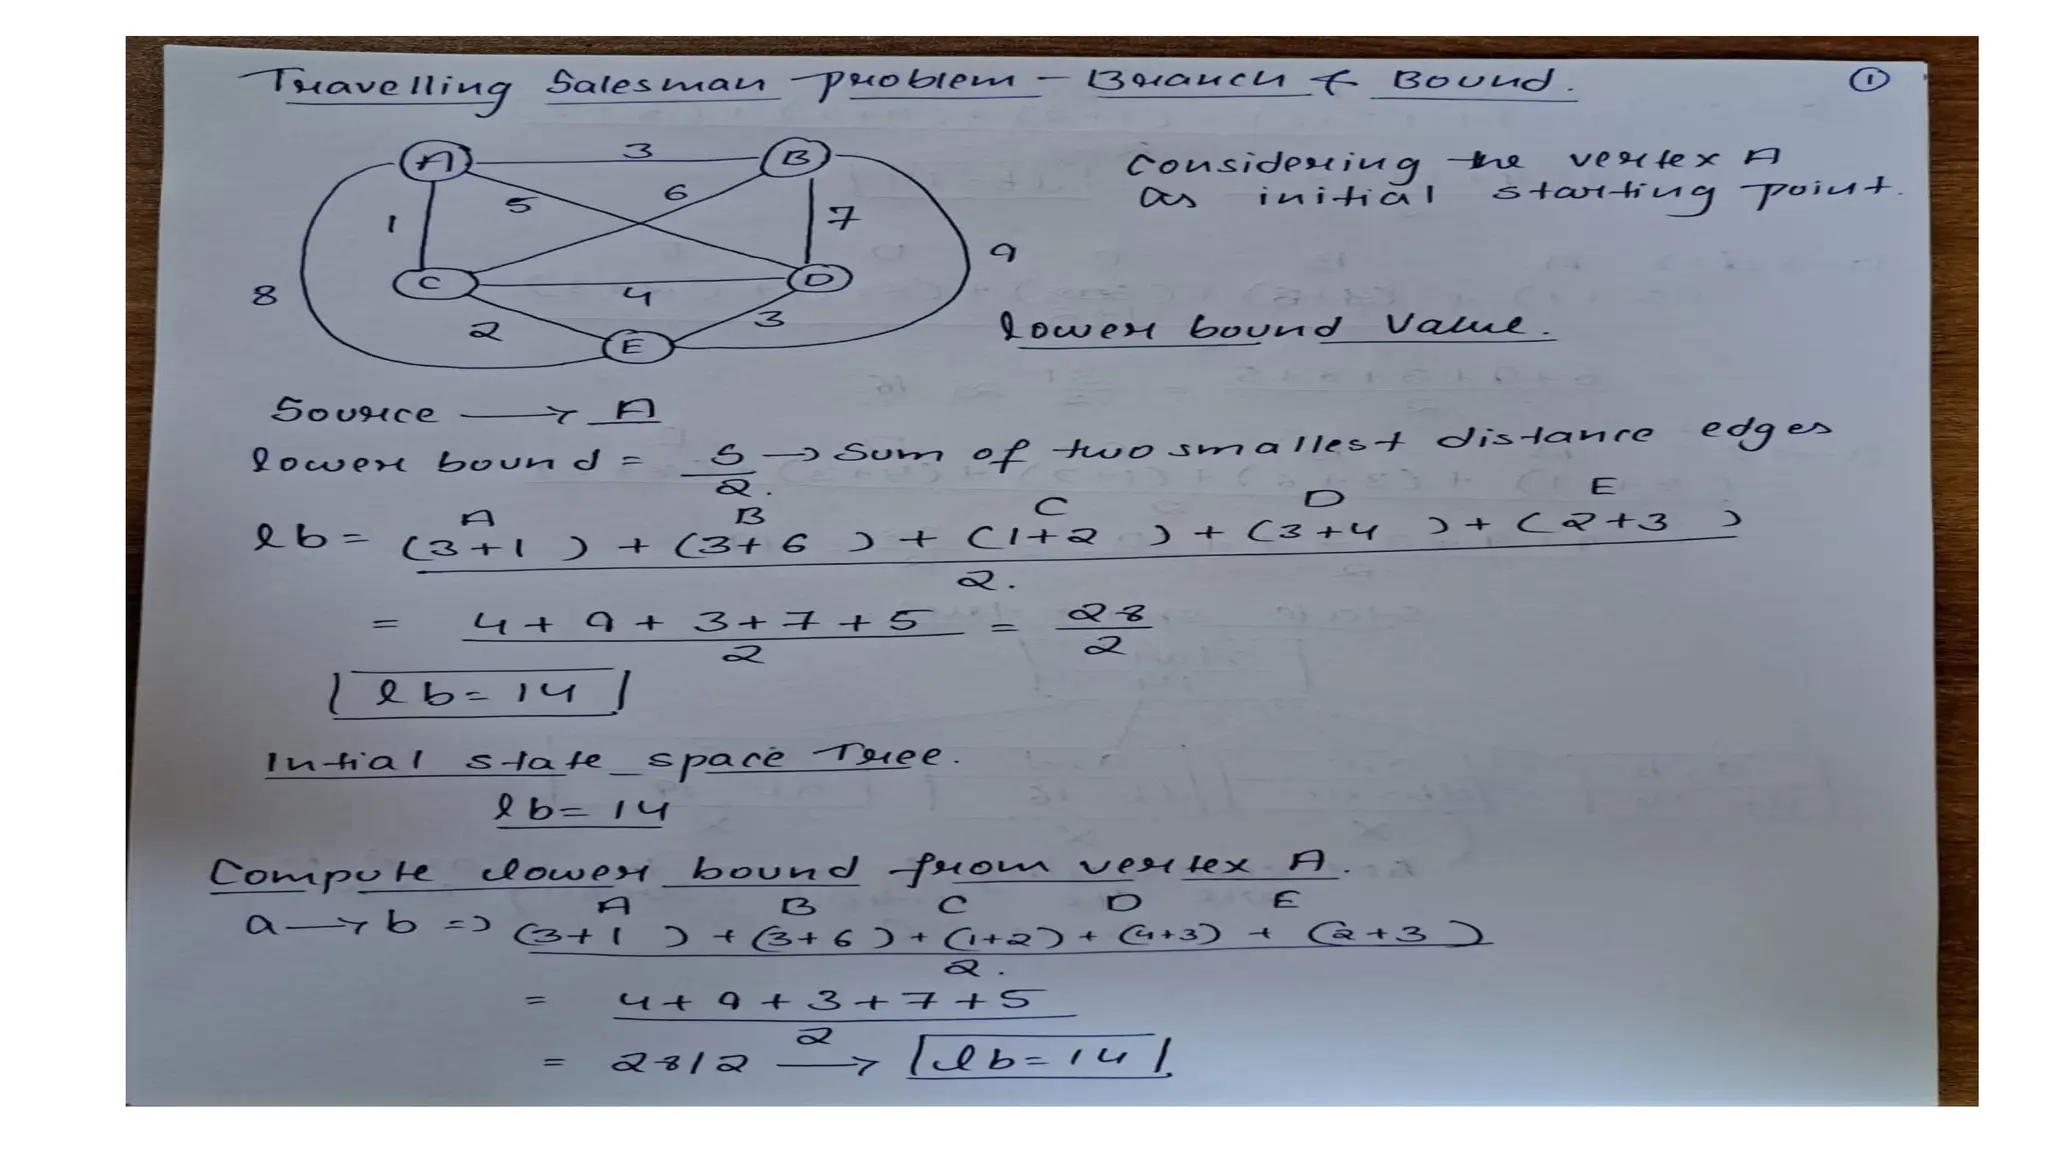 Travelling Salesman problem - Branch & Bound.
1
A 3 B
considering the vertex A
as initial starting point.
1 5 6 7
9
8
C 4 D
2 3
E
lower bound Value.
Source → A
lower bound = S/2. → Sum of two smallest distance edges
A B C D E
lb = (3+1) + (3+6) + (1+2) + (3+4) + (2+3)
2.
= 4+9+3+7+5 / 2 = 28/2
lb = 14
Intial state space Tree.
lb = 14
Compute lower bound from vertex A.
A B C D E
a → b => (3+1) + (3+6) + (1+2) + (4+3) + (2+3)
2.
= 4+9+3+7+5
2
= 28/2 → lb = 14